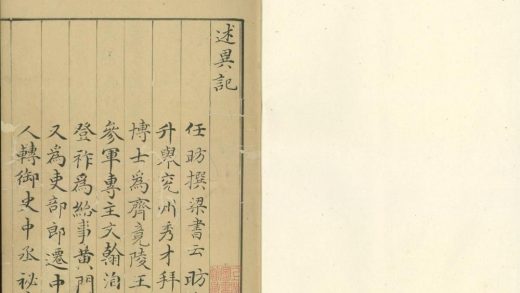 述異記
任昉撰梁書云昉
升舉兗州秀才拜
博士為齊竟陵王
參軍專主文翰洎
登祚為給事黄門
又為吏部郎遷中
人轉御史中丞祕